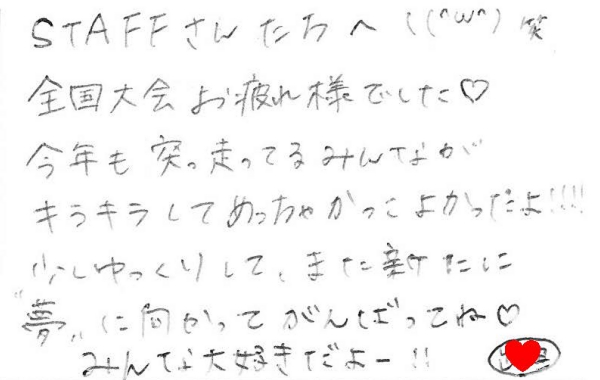 STAFFさんたちへ ( (^ω^) 笑
全国大会お疲れ様でした♡
今年も突っ走ってるみんなが
キラキラしてめっちゃかっこよかったよ!!!!
少しゆっくりして、また新たに
"夢"に向かってがんばってね♡
みんな大好きだよー!!